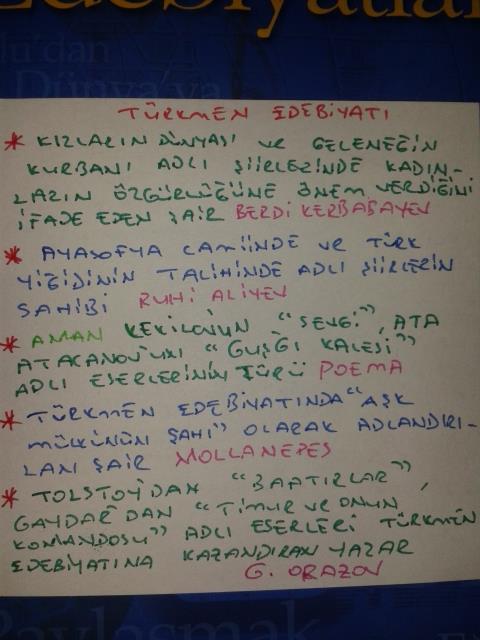 Edebiyatlar
lu'dan
Dünya'ya
TÜRKMEN EDEBİYATI
* KIZLARIN DÜNYASI ve GELENEĞİN
KURBANI ADLI ŞİİRLERİNDE KADIN-
LARIN ÖZGÜRLÜĞÜNE ÖNEM VERDİĞİNİ
İFADE EDEN ŞAİR BERDİ KERBABAYEV
* AYASOFYA CAMİİNDE ve TÜRK
YİĞİDİNİN TALİHİNDE ADLI ŞİİRLERİN
SAHİBİ RUHİ ALİYEV
* AMAN KEKİLOV'UN "SEVGİ", ATA
ATACANOV'UN "GUŞGI KALESİ"
ADLI ESERLERİNİN TÜRÜ POEMA
* TÜRKMEN EDEBİYATINDA "AŞK
MÜLKÜNÜN ŞAHI" OLARAK ADLANDIRI-
LAN ŞAİR MOLLANEPES
* TOLSTOY'DAN "BAATIRLAR",
GAYDAR'DAN "TİMUR ve ONUN
KOMANDOSU" ADLI ESERLERİ TÜRKMEN
EDEBİYATINA KAZANDIRAN YAZAR
G. ORAZOV
Paylaşmak